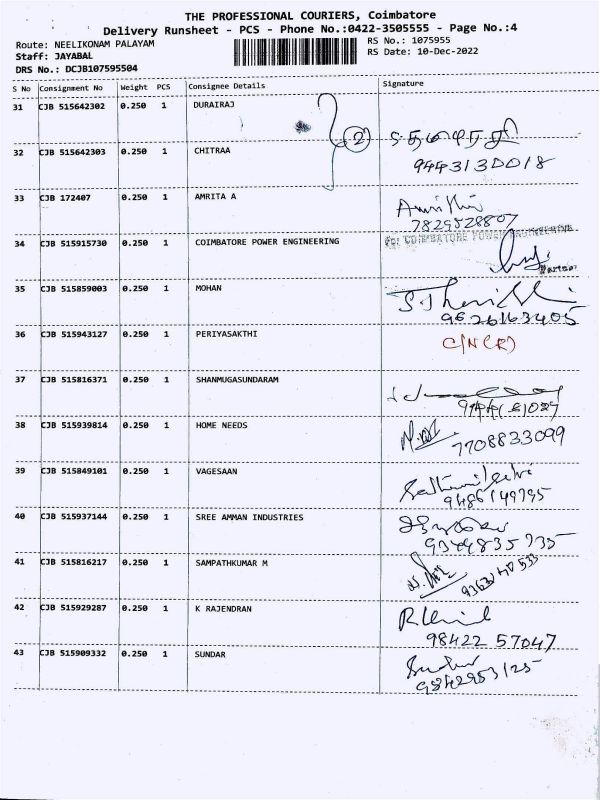 THE PROFESSIONAL COURIERS, Coimbatore
Delivery Runsheet - PCS - Phone No.:0422-3505555 - Page No.:4
Route: NEELIKONAM PALAYAM
RS No.: 1075955
Staff: JAYABAL
RS Date: 10-Dec-2022
DRS No.: DCJB107595504
S No Consignment No Weight PCS Consignee Details Signature
31 CJB 515642302 0.250 1 DURAIRAJ
2
32 CJB 515642303 0.250 1 CHITRAA
9443130018
33 CJB 172407 0.250 1 AMRITA A
7829528807
34 CJB 515915730 0.250 1 COIMBATORE POWER ENGINEERING
For COIMBATORE POWER ENGINEERING
Partner
35 CJB 515859003 0.250 1 MOHAN
9626163405
36 CJB 515943127 0.250 1 PERIYASAKTHI
C/N(R)
37 CJB 515816371 0.250 1 SHANMUGASUNDARAM
38 CJB 515939814 0.250 1 HOME NEEDS
7708833099
39 CJB 515849101 0.250 1 VAGESAAN
9486149795
40 CJB 515937144 0.250 1 SREE AMMAN INDUSTRIES
41 CJB 515816217 0.250 1 SAMPATHKUMAR M
42 CJB 515929287 0.250 1 K RAJENDRAN
98422 57047
43 CJB 515909332 0.250 1 SUNDAR
Sundar
9842953125